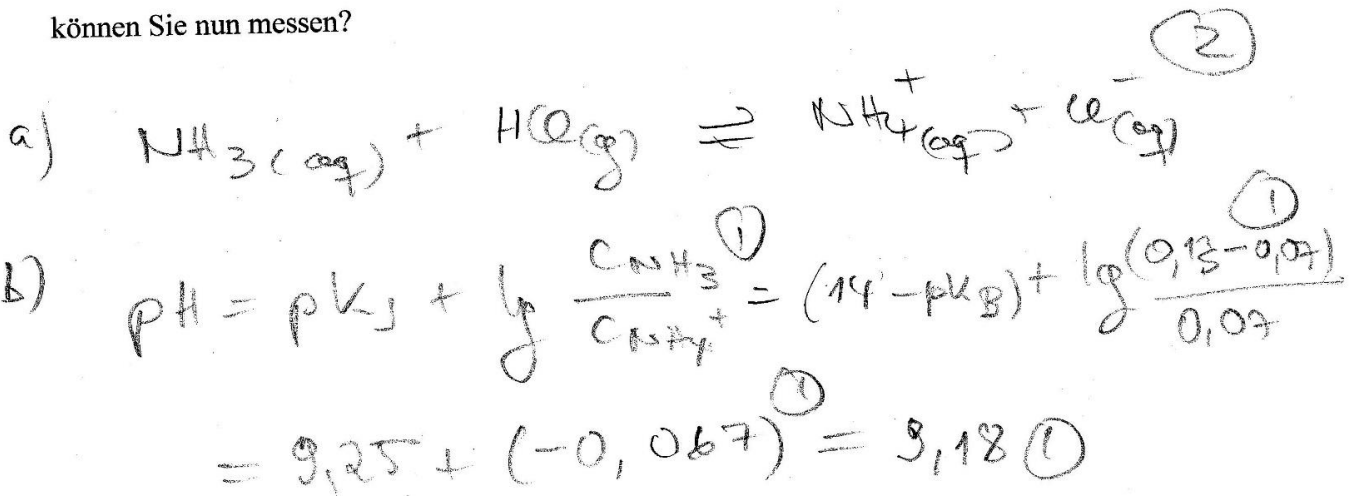 können Sie nun messen?
②
a) NH₃(aq) + HCl(g) ⇌ NH₄⁺(aq) + Cl⁻(aq)
b) pH = pKs + lg C_NH₃ / C_NH₄⁺ ① = (14 - pK_B) + lg (0,13-0,07) / 0,07 ①
= 9,25 + (-0,067) ① = 9,18 ①